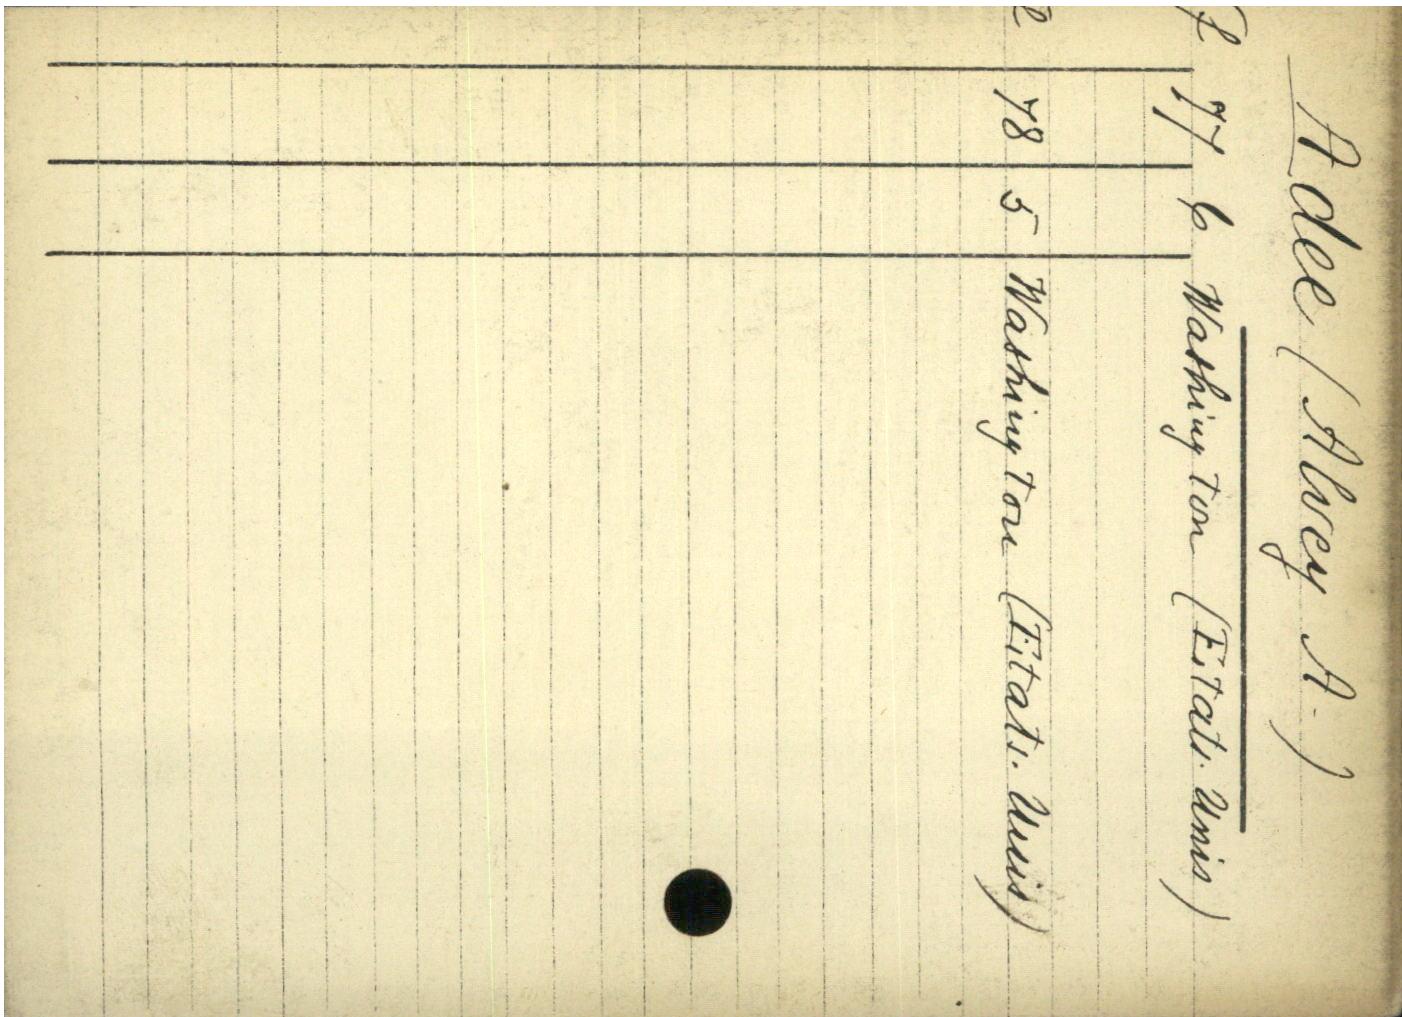 Adee (Alvey A.)
f 77 6 Washington (Etats. Unis)
78 5 Washington (Etats. Unis)